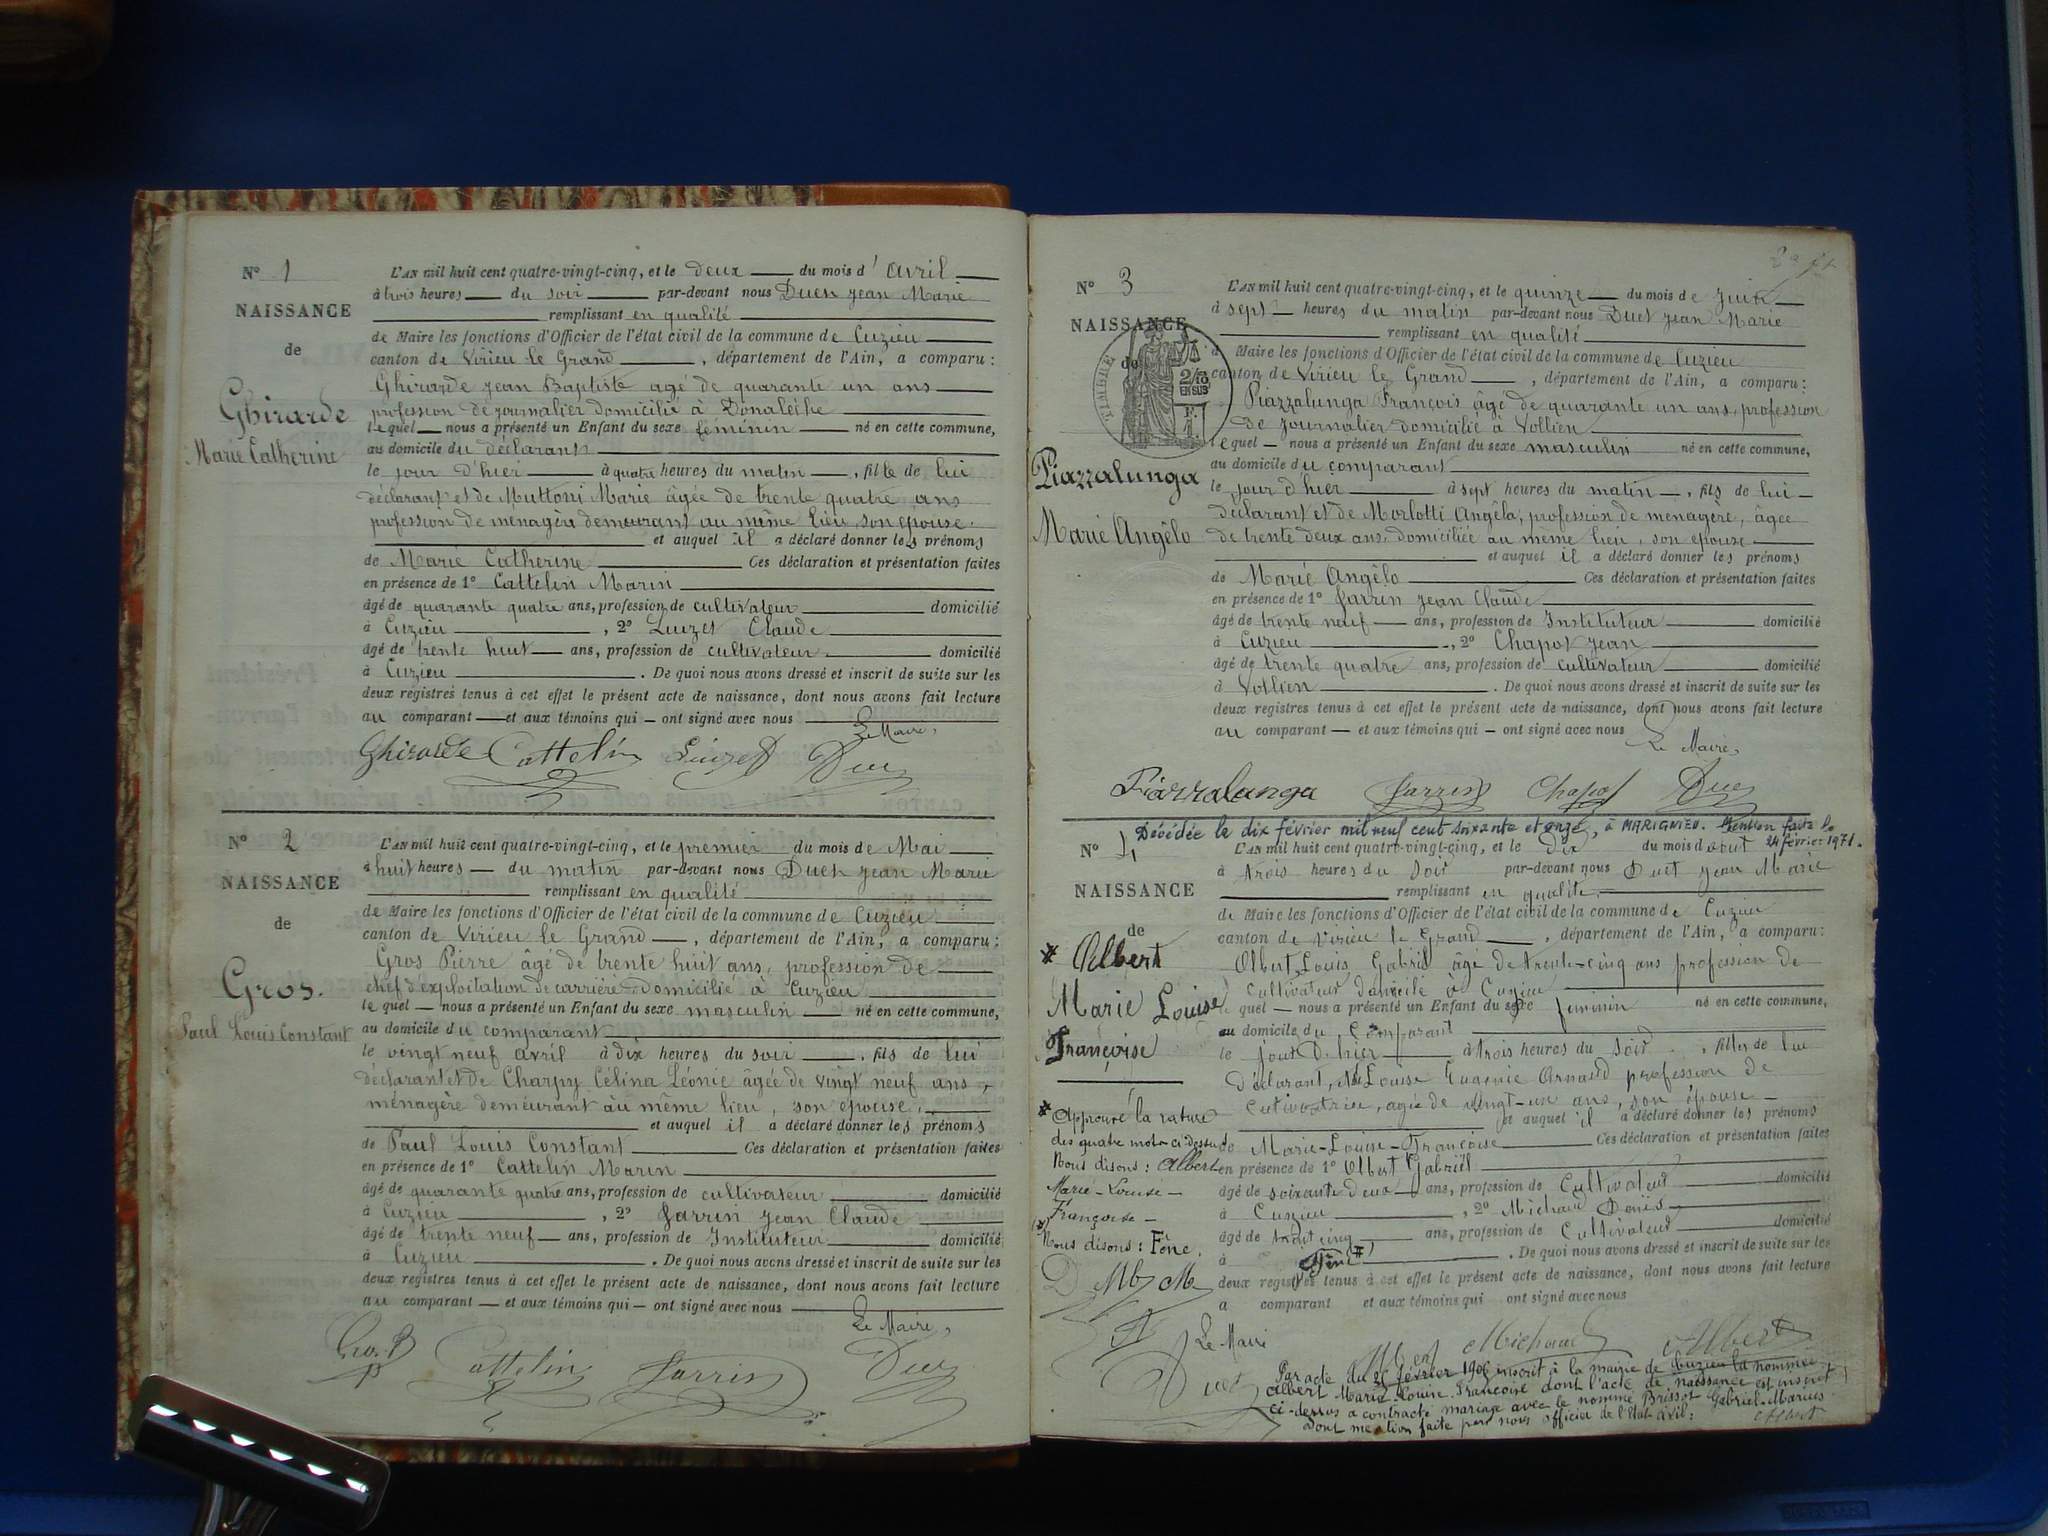 N° 1
NAISSANCE
de
Ghirarde
Marie Catherine
L'AN mil huit cent quatre-vingt-cinq, et le deux du mois d'avril
à trois heures du soir par-devant nous Duet Jean Marie
remplissant en qualité
de Maire les fonctions d'Officier de l'état civil de la commune de Cuzieu
canton de Virieu le Grand, département de l'Ain, a comparu:
Ghirarde Jean Baptiste agé de quarante un ans
profession de journalier domicilié à
lequel nous a présenté un Enfant du sexe féminin né en cette commune,
au domicile du déclarant
le jour d'hier à quatre heures du matin, fille de lui
déclarant et de Muttoni Marie âgée de trente quatre ans
profession de ménagère demeurant au même lieu, son épouse.
et auquel il a déclaré donner les prénoms
de Marie Catherine Ces déclaration et présentation faites
en présence de 1° Cattelin Marin
âgé de quarante quatre ans, profession de cultivateur domicilié
à Cuzieu, 2° Luizet Claude
âgé de trente huit ans, profession de cultivateur domicilié
à Cuzieu. De quoi nous avons dressé et inscrit de suite sur les
deux registres tenus à cet effet le présent acte de naissance, dont nous avons fait lecture
au comparant et aux témoins qui ont signé avec nous
Le Maire,
Ghirarde Cattelin Luizet Duet
N° 2
NAISSANCE
de
Gros.
Paul Louis Constant
L'AN mil huit cent quatre-vingt-cinq, et le premier du mois de Mai
à huit heures du matin par-devant nous Duet Jean Marie
remplissant en qualité
de Maire les fonctions d'Officier de l'état civil de la commune de Cuzieu
canton de Virieu le Grand, département de l'Ain, a comparu:
Gros Pierre âgé de trente huit ans, profession de
chef d'exploitation de carrière domicilié à Cuzieu
le quel nous a présenté un Enfant du sexe masculin né en cette commune,
au domicile du comparant
le vingt neuf avril à dix heures du soir, fils de lui
déclarant et de Charpy Célina Léonie âgée de vingt neuf ans,
ménagère demeurant au même lieu, son épouse,
et auquel il a déclaré donner les prénoms
de Paul Louis Constant Ces déclaration et présentation faites
en présence de 1° Cattelin Marin
âgé de quarante quatre ans, profession de cultivateur domicilié
à Cuzieu, 2° Sarrin Jean Claude
âgé de trente neuf ans, profession de Instituteur domicilié
à Cuzieu. De quoi nous avons dressé et inscrit de suite sur les
deux registres tenus à cet effet le présent acte de naissance, dont nous avons fait lecture
au comparant et aux témoins qui ont signé avec nous
Le Maire,
Gros P Cattelin Sarrin Duet
N° 3
NAISSANCE
de
TIMBRE
2/10
EN SUS
Piazzalunga
Marie Angélo
L'AN mil huit cent quatre-vingt-cinq, et le quinze du mois de Juin
à sept heures du matin par-devant nous Duet Jean Marie
remplissant en qualité
de Maire les fonctions d'Officier de l'état civil de la commune de Cuzieu
canton de Virieu le Grand, département de l'Ain, a comparu:
Piazzalunga François âgé de quarante un ans, profession
de journalier domicilié à Vollien
lequel nous a présenté un Enfant du sexe masculin né en cette commune,
au domicile du comparant
le jour d'hier à sept heures du matin, fils de lui
déclarant et de Morlotti Angéla, profession de ménagère, âgée
de trente deux ans, domiciliée au même lieu, son épouse
et auquel il a déclaré donner les prénoms
de Marie Angélo Ces déclaration et présentation faites
en présence de 1° Sarrin Jean Claude
âgé de trente neuf ans, profession de Instituteur domicilié
à Cuzieu, 2° Chapot Jean
âgé de trente quatre ans, profession de cultivateur domicilié
à Vollien. De quoi nous avons dressé et inscrit de suite sur les
deux registres tenus à cet effet le présent acte de naissance, dont nous avons fait lecture
au comparant et aux témoins qui ont signé avec nous
Le Maire,
Piazzalunga Sarrin Chapot Duet
Décédée le dix février mil neuf cent soixante et onze, à MARIGNIEU. Mention faite le
24 février 1971.
N° 4
NAISSANCE
de
* Albert
Marie Louise
Françoise
L'AN mil huit cent quatre-vingt-cinq, et le dix du mois d'août
à trois heures du soir par-devant nous Duet Jean Marie
remplissant en qualité
de Maire les fonctions d'Officier de l'état civil de la commune de Cuzieu
canton de Virieu le Grand, département de l'Ain, a comparu:
Albert Louis Gabriel âgé de trente-cinq ans profession de
cultivateur domicilé à Cuzieu
le quel nous a présenté un Enfant du sexe féminin né en cette commune,
au domicile du Comparant
le jour d'hier à trois heures du soir, fille de lui
déclarant, Louise Eugénie Arnaud profession de
Cultivatrice, agée de vingt-un ans, son épouse
et auquel il a déclaré donner les prénoms
de Marie-Louise-Françoise Ces déclaration et présentation faites
en présence de 1° Albert Gabriel
âgé de soixante deux ans, profession de Cultivateur domicilié
à Cuzieu, 2° Michaud Denis
âgé de trente cinq ans, profession de Cultivateur domicilié
à. De quoi nous avons dressé et inscrit de suite sur les
deux registres tenus à cet effet le présent acte de naissance, dont nous avons fait lecture
a comparant et aux témoins qui ont signé avec nous
* Approuvé la rature
des quatre mots ci-dessus
Nous disons: Albert
Marie-Louise-
Françoise-
Nous disons: Fêne.
Le Maire
Duet Albert Michaud Albert
Par acte du 26 février 1906 inscrit à la mairie de Cuzieu la nommée
Albert Marie-Louise Françoise dont l'acte de naissance est inscrit
ci-dessus a contracté mariage avec le nommé Brissot Gabriel-Marius
Dont mention faite par nous officier de l'Etat civil: